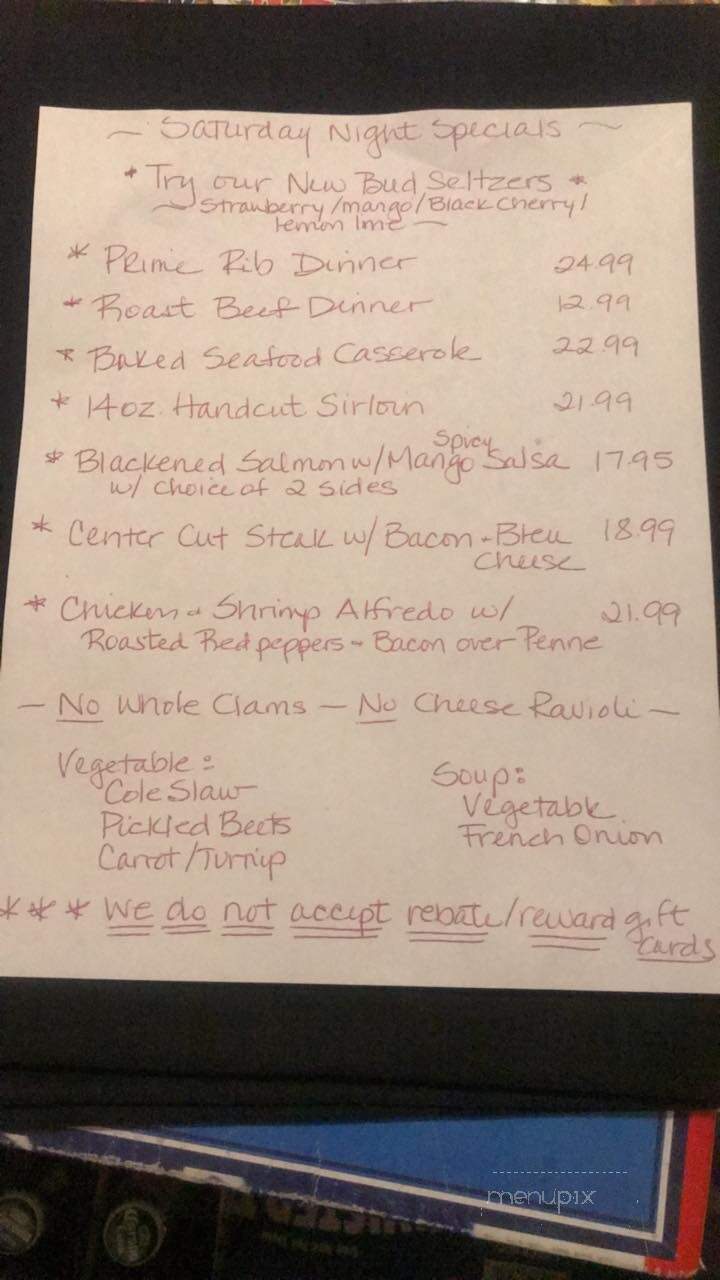 ~ Saturday Night Specials ~
* Try our New Bud Seltzers *
~ Strawberry/mango/Black Cherry/
lemon lime ~
* Prime Rib Dinner 24.99
* Roast Beef Dinner 12.99
* Baked Seafood Casserole 22.99
* 14oz. Handcut Sirloin 21.99
* Blackened Salmon w/ Mango Spicy Salsa 17.95
w/ choice of 2 sides
* Center Cut Steak w/ Bacon + Bleu 18.99
Cheese
* Chicken + Shrimp Alfredo w/ 21.99
Roasted Red peppers + Bacon over Penne
- No Whole Clams - No Cheese Ravioli -
Vegetable:
Cole Slaw
Pickled Beets
Carrot/Turnip
Soup:
Vegetable
French Onion
*** We do not accept rebate/reward gift
cards
menupix